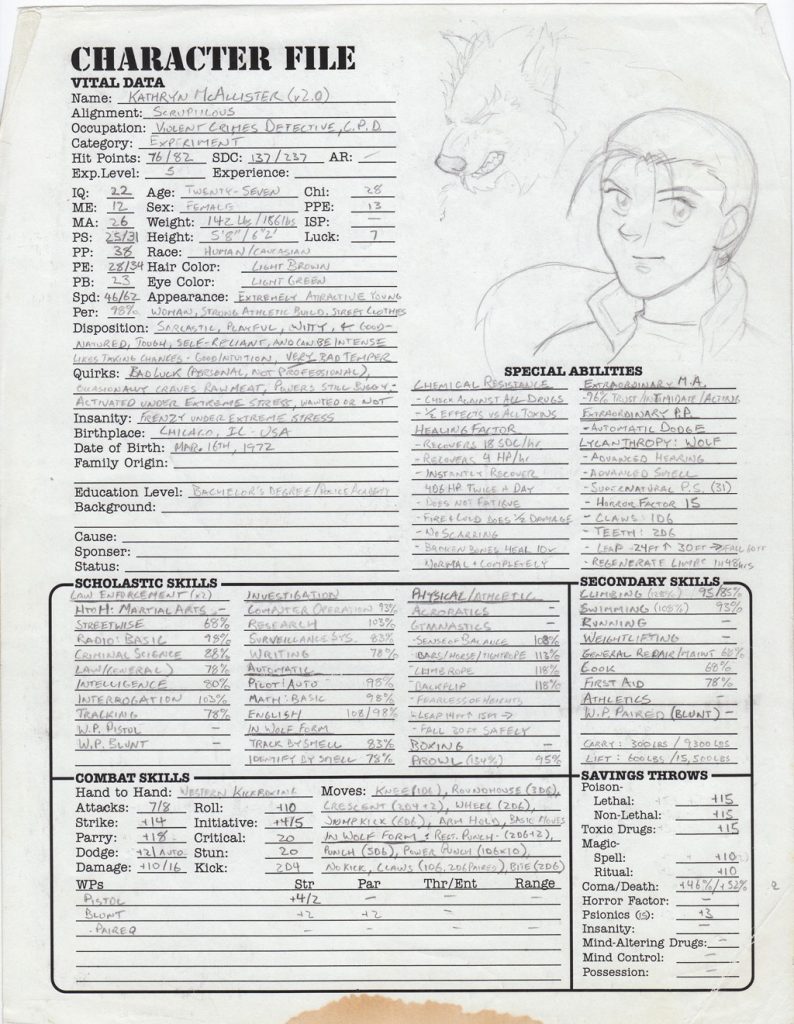 CHARACTER FILE
VITAL DATA
Name: KATHRYN McALLISTER (v2.0)
Alignment: SCRUPULOUS
Occupation: VIOLENT CRIMES DETECTIVE, C.P.D.
Category: EXPERIMENT
Hit Points: 76/82 SDC: 137/237 AR: —
Exp.Level: 5 Experience:
IQ: 22 Age: TWENTY-SEVEN Chi: 28
ME: 12 Sex: FEMALE PPE: 13
MA: 26 Weight: 142 lbs/186 lbs ISP: —
PS: 25/31 Height: 5'8"/6'2" Luck: 7
PP: 38 Race: HUMAN/CAUCASIAN
PE: 28/34 Hair Color: LIGHT BROWN
PB: 23 Eye Color: LIGHT GREEN
Spd: 46/62 Appearance: EXTREMELY ATTRACTIVE YOUNG
Per: 98% WOMAN, STRONG ATHLETIC BUILD, STREET CLOTHES
Disposition: SARCASTIC, PLAYFUL, WITTY, & GOOD-
NATURED, TOUGH, SELF-RELIANT, AND CAN BE INTENSE
LIKES TAKING CHANCES - GOOD INTUITION, VERY BAD TEMPER
Quirks: BAD LUCK (PERSONAL, NOT PROFESSIONAL),
OCCASIONALLY CRAVES RAW MEAT, POWERS STILL BUGGY,-
ACTIVATED UNDER EXTREME STRESS, WANTED OR NOT
Insanity: FRENZY UNDER EXTREME STRESS
Birthplace: CHICAGO, IL - USA
Date of Birth: MAR. 16TH, 1972
Family Origin:
Education Level: BACHELOR'S DEGREE/POLICE ACADEMY
Background:
Cause:
Sponser:
Status:
SPECIAL ABILITIES
CHEMICAL RESISTANCE
- CHECK AGAINST ALL DRUGS
- 1/2 EFFECTS VS ALL TOXINS
HEALING FACTOR
- RECOVERS 18 SDC/hr
- RECOVERS 4 HP/hr
- INSTANTLY RECOVER
4D6 HP TWICE A DAY
- DOES NOT FATIGUE
- FIRE & COLD DOES 1/2 DAMAGE
- NO SCARRING
- BROKEN BONES HEAL 10x
NORMAL + COMPLETELY
EXTRAORDINARY M.A.
- 96% TRUST/INTIMIDATE/ACTING
EXTRAORDINARY P.P.
- AUTOMATIC DODGE
LYCANTHROPY: WOLF
- ADVANCED HEARING
- ADVANCED SMELL
- SUPERNATURAL P.S. (31)
- HORROR FACTOR 15
- CLAWS: 1D6
- TEETH: 2D6
- LEAP 24FT↑ 30FT → FALL 60FT
- REGENERATE LIMBS IN 48hrs
SCHOLASTIC SKILLS
LAW ENFORCEMENT (x2)
HtoH: MARTIAL ARTS —
STREETWISE 68%
RADIO: BASIC 98%
CRIMINAL SCIENCE 88%
LAW (GENERAL) 78%
INTELLIGENCE 80%
INTERROGATION 103%
TRACKING 78%
W.P. PISTOL —
W.P. BLUNT —
INVESTIGATION
COMPUTER OPERATION 93%
RESEARCH 103%
SURVEILLANCE SYS. 83%
WRITING 78%
AUTOMATIC
PILOT: AUTO 98%
MATH: BASIC 98%
ENGLISH 108/98%
IN WOLF FORM
TRACK BY SMELL 83%
IDENTIFY BY SMELL 78%
PHYSICAL/ATHLETIC
ACROBATICS —
GYMNASTICS —
- SENSE OF BALANCE 108%
- BARS/HORSE/TIGHTROPE 113%
- CLIMB ROPE 118%
- BACKFLIP 118%
- FEARLESS OF HEIGHTS
- LEAP 14FT↑ 15FT →
- FALL 30FT SAFELY
BOXING —
PROWL (134%) 95%
SECONDARY SKILLS
CLIMBING (128%) 95/85%
SWIMMING (108%) 93%
RUNNING —
WEIGHTLIFTING —
GENERAL REPAIR/MAINT 68%
COOK 68%
FIRST AID 78%
ATHLETICS —
W.P. PAIRED (BLUNT) —
CARRY: 300 LBS / 9300 LBS
LIFT: 600 LBS / 15,500 LBS
COMBAT SKILLS
Hand to Hand: WESTERN KICKBOXING
Attacks: 7/8 Roll: +10
Strike: +14 Initiative: +4/5
Parry: +18 Critical: 20
Dodge: +21/AUTO Stun: 20
Damage: +10/16 Kick: 2D4
Moves: KNEE (1D6), ROUNDHOUSE (3D6),
CRESCENT (2D4+2), WHEEL (2D6),
JUMP KICK (6D6), ARM HOLD, BASIC MOVES
IN WOLF FORM: REST. PUNCH - (2D6+2),
PUNCH (5D6), POWER PUNCH (1D6x10),
NO KICK, CLAWS (1D6, 2D6 PAIRED), BITE (2D6)
WPs Str Par Thr/Ent Range
PISTOL +4/2 — — —
BLUNT +2 +2 — —
- PAIRED — — — —
SAVINGS THROWS
Poison-
Lethal: +15
Non-Lethal: +15
Toxic Drugs: +15
Magic-
Spell: +10
Ritual: +10
Coma/Death: +46%/+52%
Horror Factor: —
Psionics (15): +3
Insanity: —
Mind-Altering Drugs: —
Mind Control: —
Possession: —